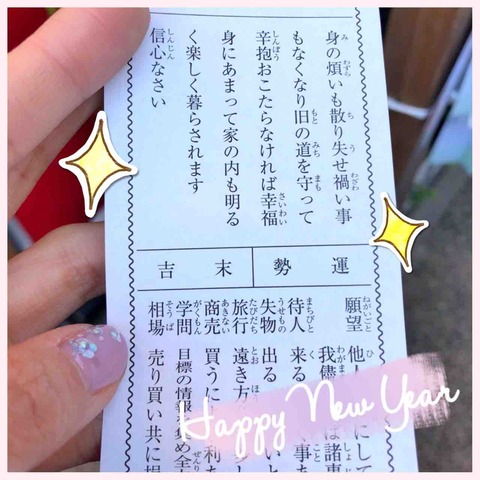 身の煩いも散り失せ禍い事
もなくなり旧の道を守って
辛抱おこたらなければ幸福
身にあまって家の内も明る
く楽しく暮らされます
信心なさい
運勢
末吉
願望 他人 にして
我儘 は諸事
待人 来る
失物 出る
旅行 遠き方
商売 買うに 利
学問 目標の情報を集め全
相場 売り買い共に
Happy New Year